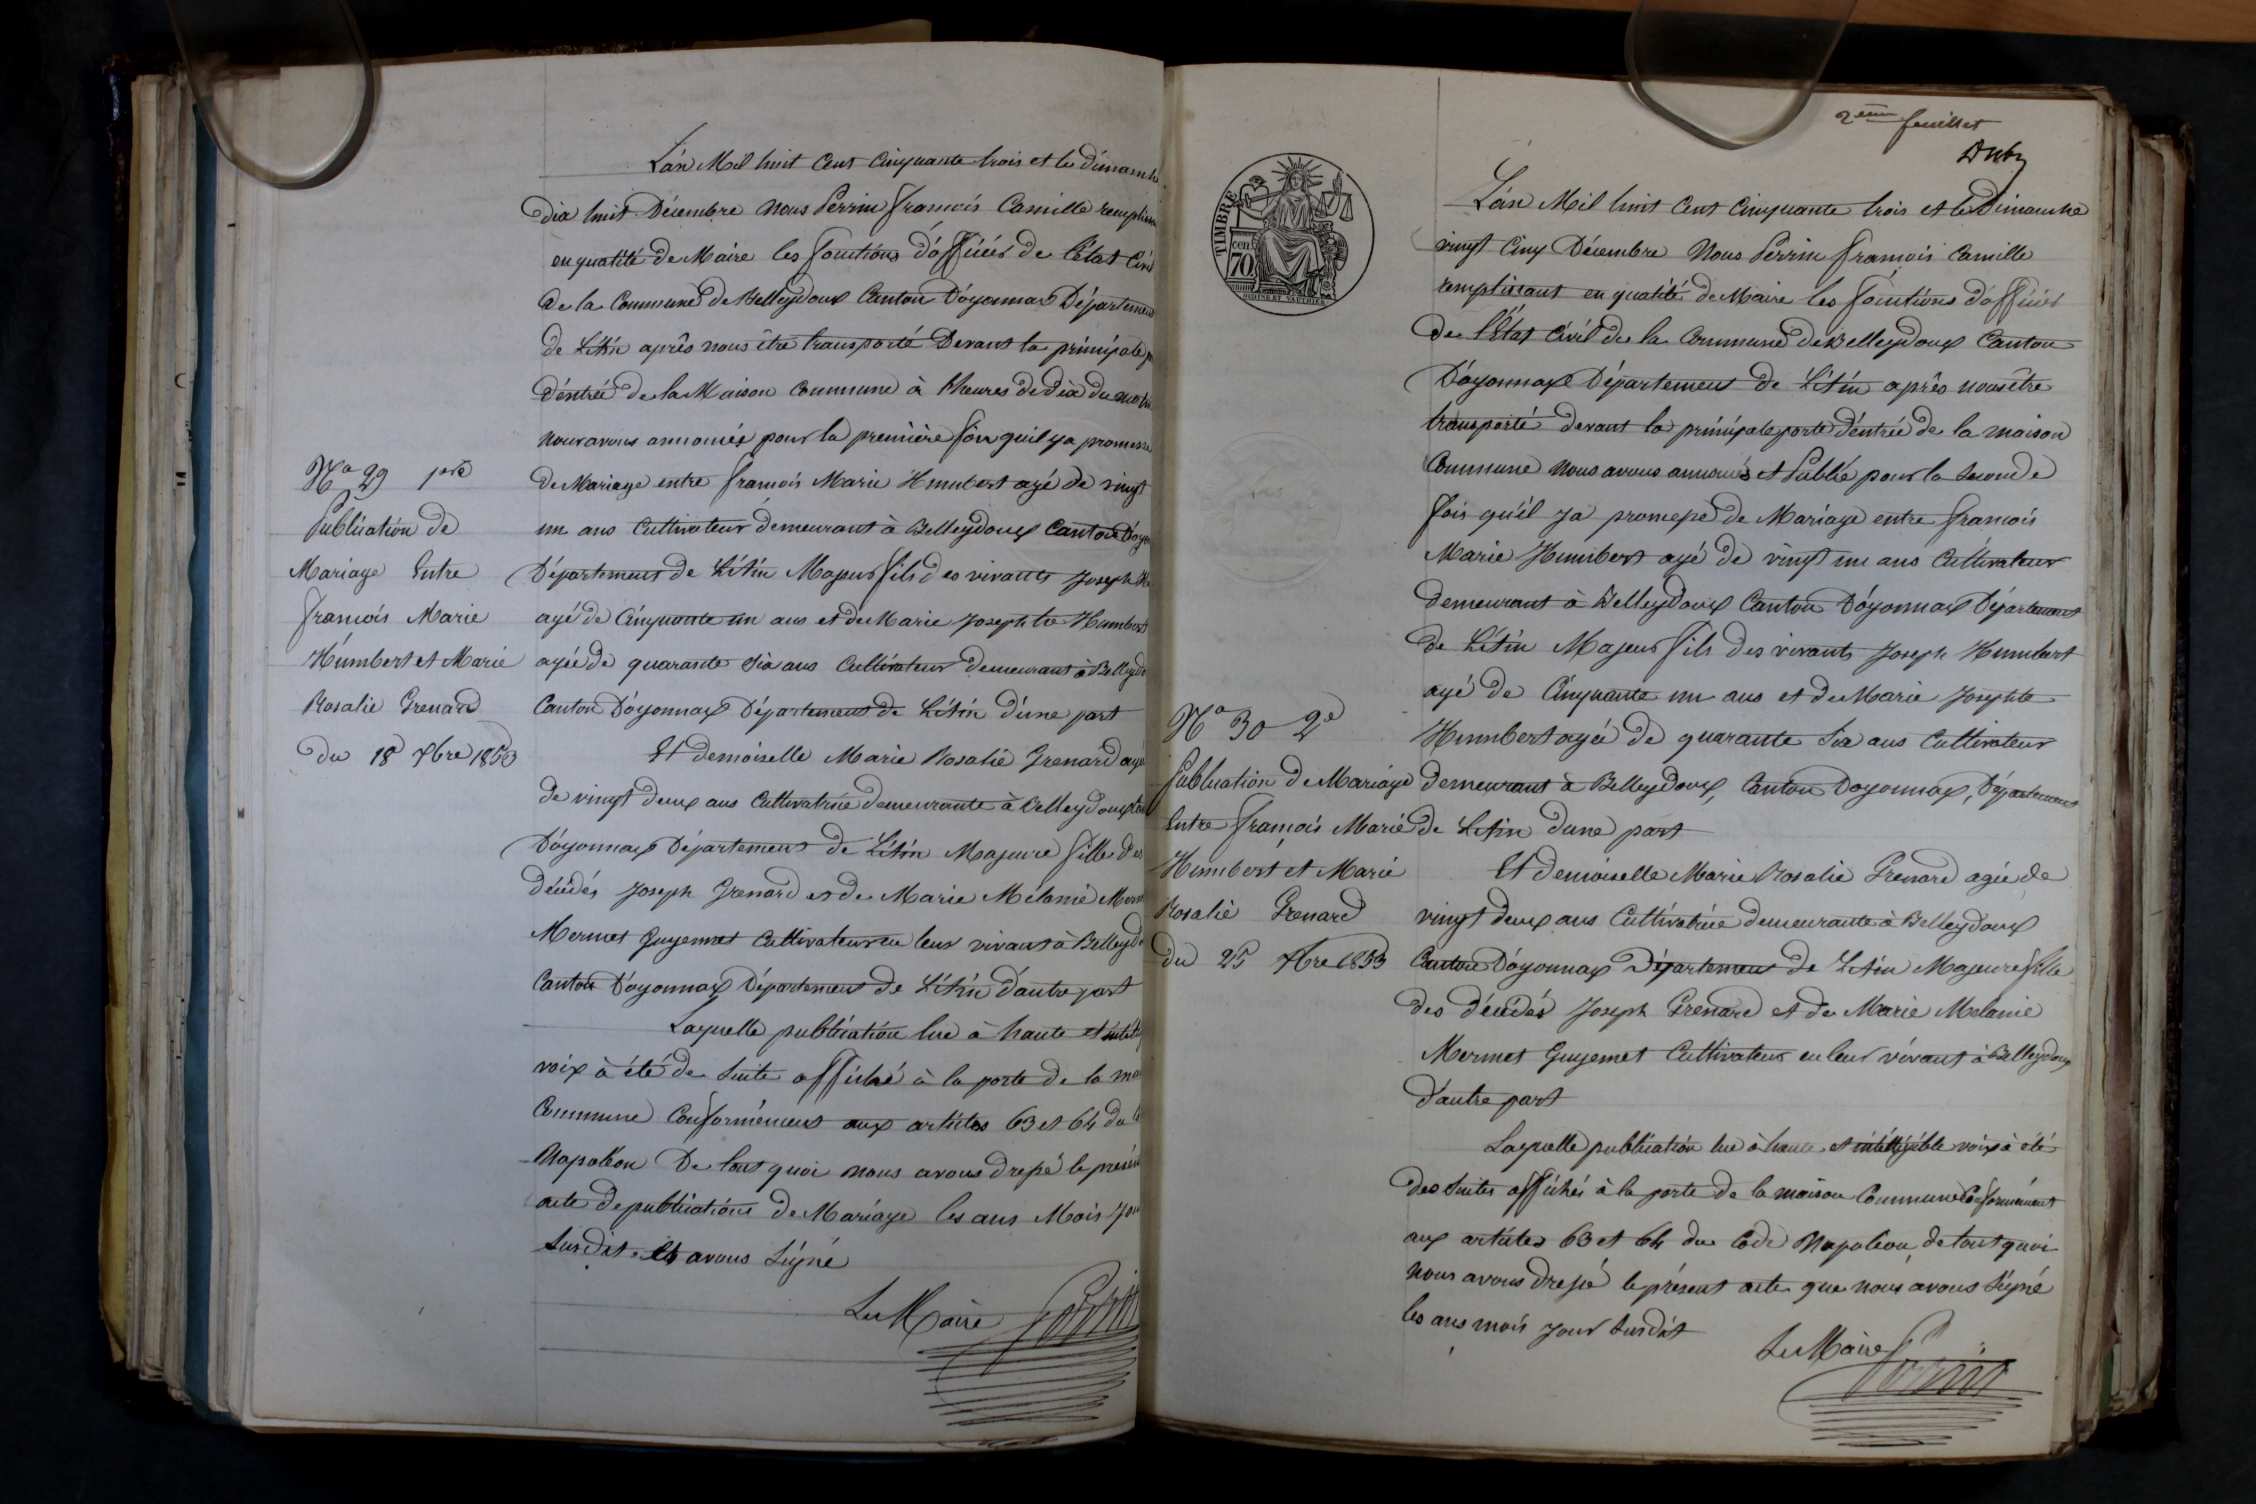 L'an Mil huit Cent Cinquante trois et le dimanche
dix huit Décembre Nous Perrin françois Camille
en qualité de Maire les fonctions d'officier de l'état Civil
de la Commune de Belleydoux Canton D'oyonnax Département
de L'Ain après nous être transporté Devant la principale
d'entrée de la Maison Commune à heures de dix du matin
nous avons annoncés pour la première fois qu'il y a promesse
de Mariage entre francois Marie Humbert agé de vingt
un ans Cultivateur demeurant à Belleydoux Canton
Département de L'Ain Majeur fils des vivants Joseph
agé de Cinquante un ans et de Marie Josephte Humbert
agée de quarante Six ans Cultivateur demeurant à
Canton D'oyonnax Département de L'Ain d'une part
Et demoiselle Marie Rosalie Grenard
de vingt deux ans Cultivatrice demeurante à Belleydoux
D'oyonnax Département de L'Ain Majeure fille des
décédés Joseph Grenard et de Marie Mélanie
Mermet Guyennet Cultivateur en leur vivant à
Canton D'oyonnax Département de L'Ain d'autre part
Laquelle publication lue à haute et
voix à été de suite affiché à la porte de la
Commune Conformément aux articles 63 et 64 du
Napoléon De tout quoi nous avons drepé le
acte de publications de Mariage les ans Mois
Susdit. Et avons Signé
Le Maire Perrin
No 29 pre
Publication de
Mariage Entre
francois Marie
Humbert et Marie
Rosalie Grenard
du 18 Xbre 1853
2eme feuillet
TIMBRE
cen
70
L'an Mil huit Cent Cinquante trois et le Dimanche
vingt Cinq Décembre Nous Perrin françois Camille
remplissant en qualité de Maire les fonctions d'officier
de l'État Civil de la Commune de Belleydoux Canton
D'oyonnax Département de L'Ain après nous être
transporté devant la principale porte d'entrée de la maison
Commune nous avons annoncés et Publié pour la seconde
fois qu'il ya promepe de Mariage entre francois
Marie Humbert agé de vingt un ans Cultivateur
demeurant à Belleydoux Canton D'oyonnax Département
de L'Ain Majeur fils des vivants Joseph Humbert
agé de Cinquante un ans et de Marie Josephte
Humbert agée de quarante Six ans Cultivateur
demeurant à Belleydoux, Canton Doyonnax, Département
de L'Ain dune part
Et demoiselle Marie Rosalie Grenard agée de
vingt deux ans Cultivatrice demeurante à Belleydoux
Canton D'oyonnax Département de L'Ain Majeure fille
des décédés Joseph Grenard et de Marie Melanie
Mermet Guyennet Cultivateur en leur vivant à Belleydoux
d'autre part
Laquelle publication lue à haute et intelligible voix à été
des suites affichés à la porte de la maison Commune Conformément
aux articles 63 et 64 du Code Napoléon, de tout quoi
nous avons drepé le présent acte que nous avons Signé
les ans mois jour susdit
Le Maire Perrin
No 30 2e
Publication de Mariage
Entre françois Marie
Humbert et Marie
Rosalie Grenard
du 25 Xbre 1853